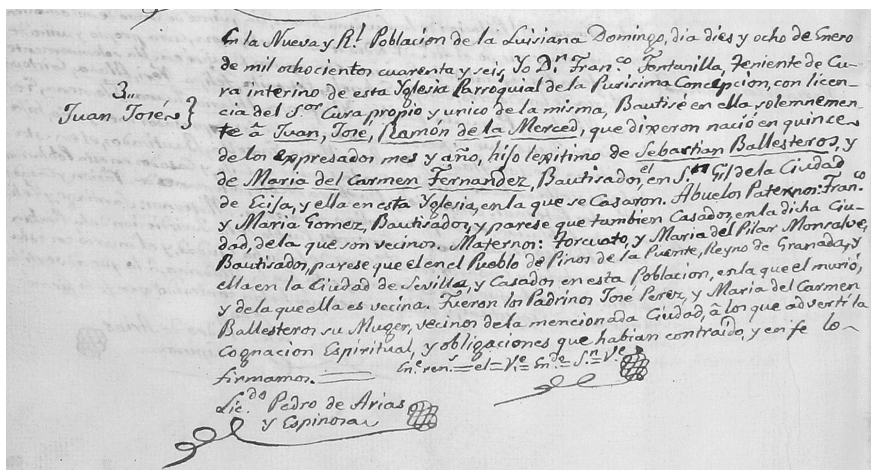 En la Nueva y Rl. Poblacion de la Luisiana Domingo, dia dies y ocho de Enero
de mil ochocientos cuarenta y seis, Yo Dn. Franco. Fontanilla, Teniente de Cu-
ra interino de esta Yglesia Parroquial de la Purisima Concepcion, con licen-
3..
cia del Sor. Cura, propio y unico de la misma, Bautisé en ella solemnemen-
Juan José }
te â Juan, José, Ramón de la Merced, que dixeron nació en quince
de los expresados mes y año, hijo lexitimo de Sebastian Ballesteros, y
de Maria del Carmen Fernandez, Bautisados, el en Sn. Gil de la Ciudad
de Ecija, y ella en esta Yglesia, en la que se Casaron. Abuelos Paternos: Franco.
y Maria Gomez, Bautisados, y parese que tambien Casados, en la dicha Ciu-
dad, de la que son vecinos. Maternos: Torcuato, y Maria del Pilar Monsalve,
Bautisados, parese que el en el Pueblo de Pinos de la Puente, Reyno de Granada, y
ella en la Ciudad de Sevilla, y Casados en esta Poblacion, en la que el murió,
y de la que ella es vecina. Fueron los Padrinos José Perez, y Maria del Carmen
Ballesteros su Muger, vecinos de la mencionada Ciudad, â los que advertí la
Cognacion Espiritual, y obligaciones que habian contraido, y en fe lo
firmamos. = el = Ve. = Sn. = Ve.
Licdo. Pedro de Arias
y Espinosa